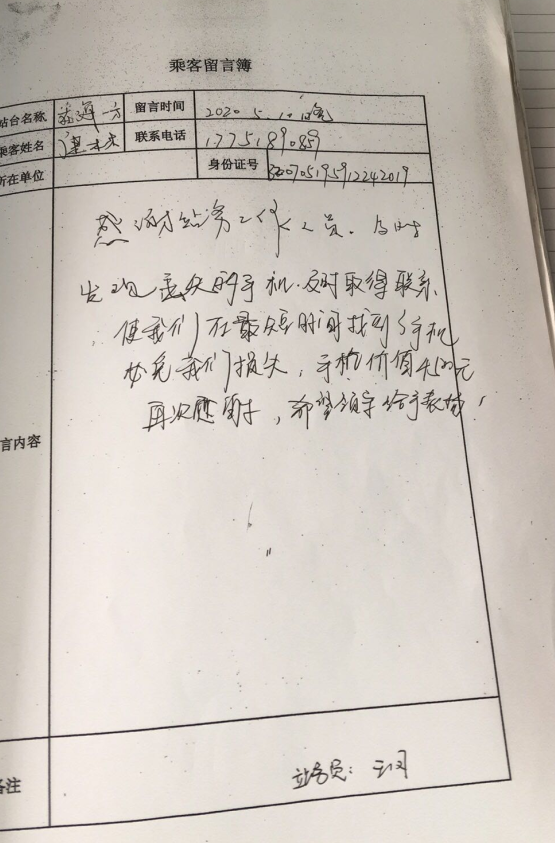 乘客留言簿
站台名称 留言时间 2020.5.10
乘客姓名 联系电话 17751890859
所在单位 身份证号 320705195912242019
感谢站务工作人员。及时
出现丢失的手机.及时取得联系
使我们在最短时间找到手机
避免我们损失,手机价值4500元
再次感谢,希望领导给予表扬!
言内容
备注 站务员: